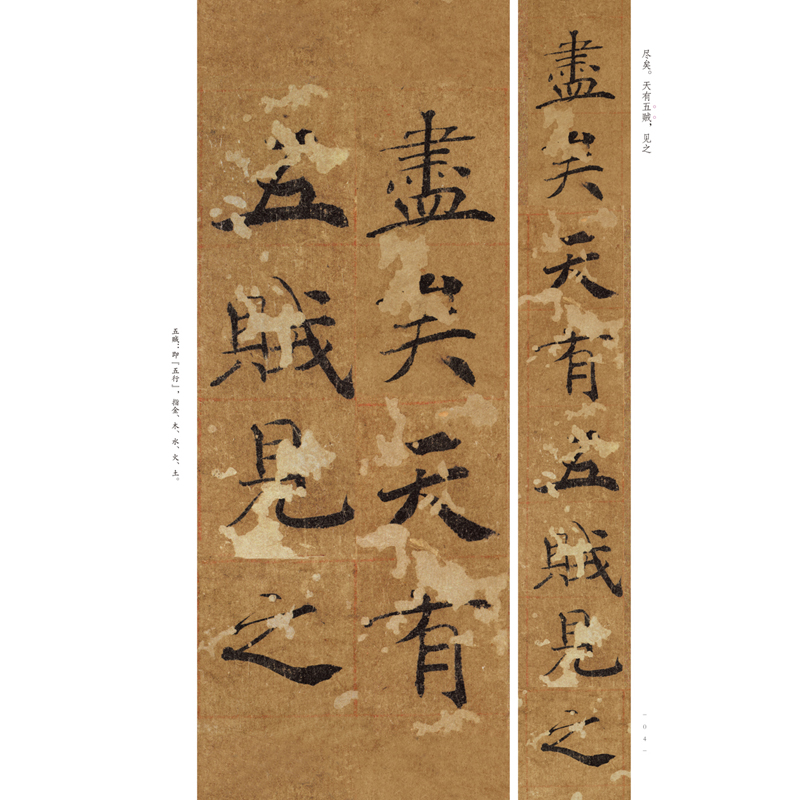 尽矣。天有五贼，见之
盡矣天有五賊見之
盡矣天有
五賊見之
五贼：即「五行」，指金、木、水、火、土。
~04~